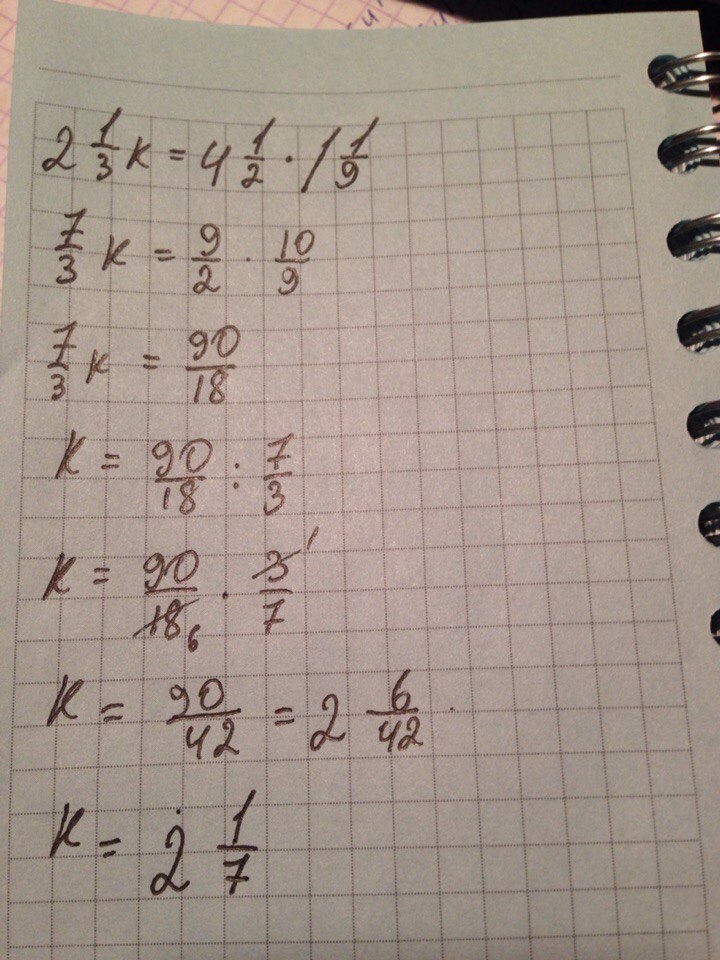 2 1/3 к = 4 1/2 · 1 1/9
7/3 к = 9/2 · 10/9
7/3 к = 90/18
к = 90/18 : 7/3
к = 90/18 6 · 3/7 1
к = 90/42 = 2 6/42
к = 2 1/7